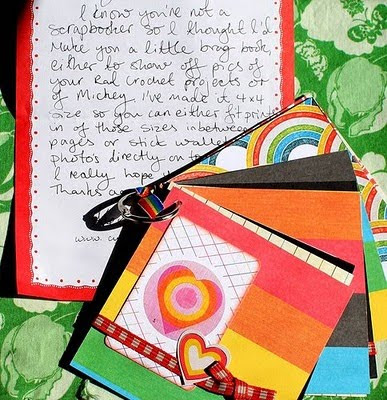 I know you're not a
scrapbooker so I thought I'd
make you a little brag book,
either to show off pics of
your Real crochet projects or
of Mickey. I've made it 4x4
size, so you can either fit prints
in of those sizes inbetween
pages or stick wallet
photo's directly on to
I really hope
Thanks
www.